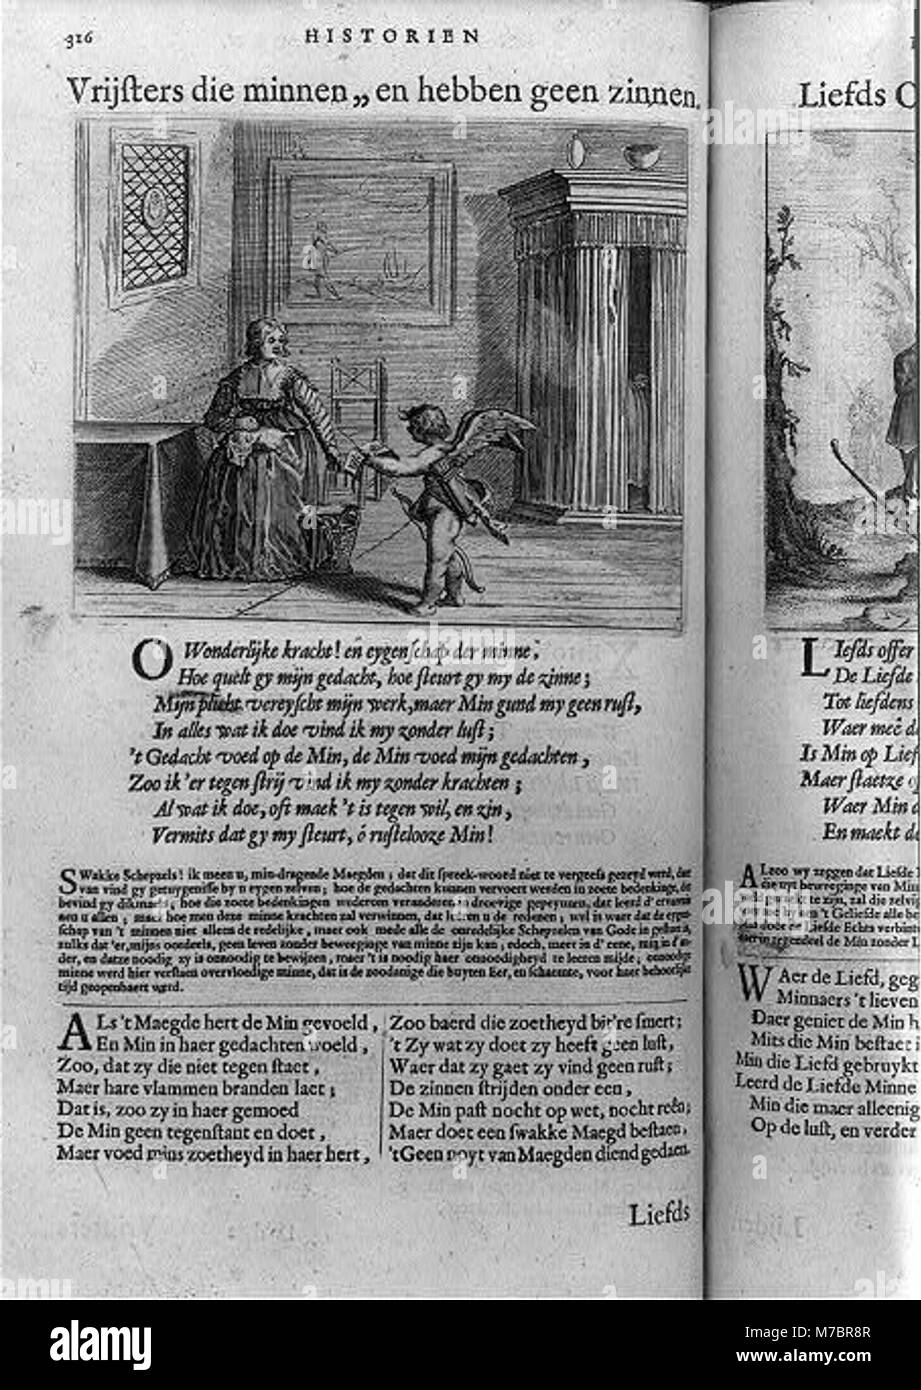 316
HISTORIEN
Vrijsters die minnen„ en hebben geen zinnen.
O Wonderlijke kracht! en eygenschap der minne,
Hoe quelt gy mijn gedacht, hoe steurt gy my de zinne;
Mijn plicht vereyscht mijn werk, maer Min gund my geen rust,
In alles wat ik doe vind ik my zonder lust;
't Gedacht voed op de Min, de Min voed mijn gedachten,
Zoo ik 'er tegen strij vind ik my zonder krachten;
Al wat ik doe, oft maek 't is tegen wil, en zin,
Vermits dat gy my steurt, ô rustelooze Min!
SWakke Schepzels! ik meen u, min-dragende Maegden; dat dit spreek-woord niet te vergeefs gezeyd werd, dat
van vind gy getuygenisse by u eygen zelven; hoe de gedachten kunnen vervoert werden in zoete bedenkinge, dit
bevind gy dikmaels; hoe die zoete bedenkingen wederom veranderen in droevige gepeynzen, dat leerd d'ervarin
een u allen; maer hoe men deze minne krachten zal verwinnen, dat leeren u de redenen; wel is waer dat de eygen-
schap van 't minnen niet alleen de redelijke, maer ook mede alle de onredelijke Schepzelen van Gode is gegeven,
zulks dat 'er, mijns oordeels, geen leven zonder beweeginge van minne zijn kan; edoch, meer in d'eene, min in d'an-
der, en datze noodig zy is onnoodig te bewijzen, maer 't is noodig haer onnoodigheyd te leeren mijde; onnoodige
minne werd hier verstaen overvloedige minne, dat is de zoodanige die buyten Eer, en schaemte, voor haer behoorlijke
tijd geopenbaert werd.
ALs 't Maegde hert de Min gevoeld,
En Min in haer gedachten woeld,
Zoo, dat zy die niet tegen staet,
Maer hare vlammen branden laet;
Dat is, zoo zy in haer gemoed
De Min geen tegenstant en doet,
Maer voed mins zoetheyd in haer hert,
Zoo baerd die zoetheyd bit're smert;
't Zy wat zy doet zy heeft geen lust,
Waer dat zy gaet zy vind geen rust;
De zinnen strijden onder een,
De Min past noch op wet, nocht reên;
Maer doet een swakke Maegd bestaen,
't Geen noyt van Maegden diend gedaen.
Liefds
Liefds O
LIefds offer
De Liefde
Tot liefdens
Waer meê d
Is Min op Lief
Maer staetze o
Waer Min
En maekt d
ALzoo wy zeggen dat Liefde
die uyt beweeginge van Min
WAer de Liefd, geg
Minnaers 't lieven
Daer geniet de Min h
Mits die Min bestaet i
Min die Liefd gebruykt
Leerd de Liefde Minne
Min die maer alleenig
Op de lust, en verder
alamy
Image ID: M7BR8R
www.alamy.com